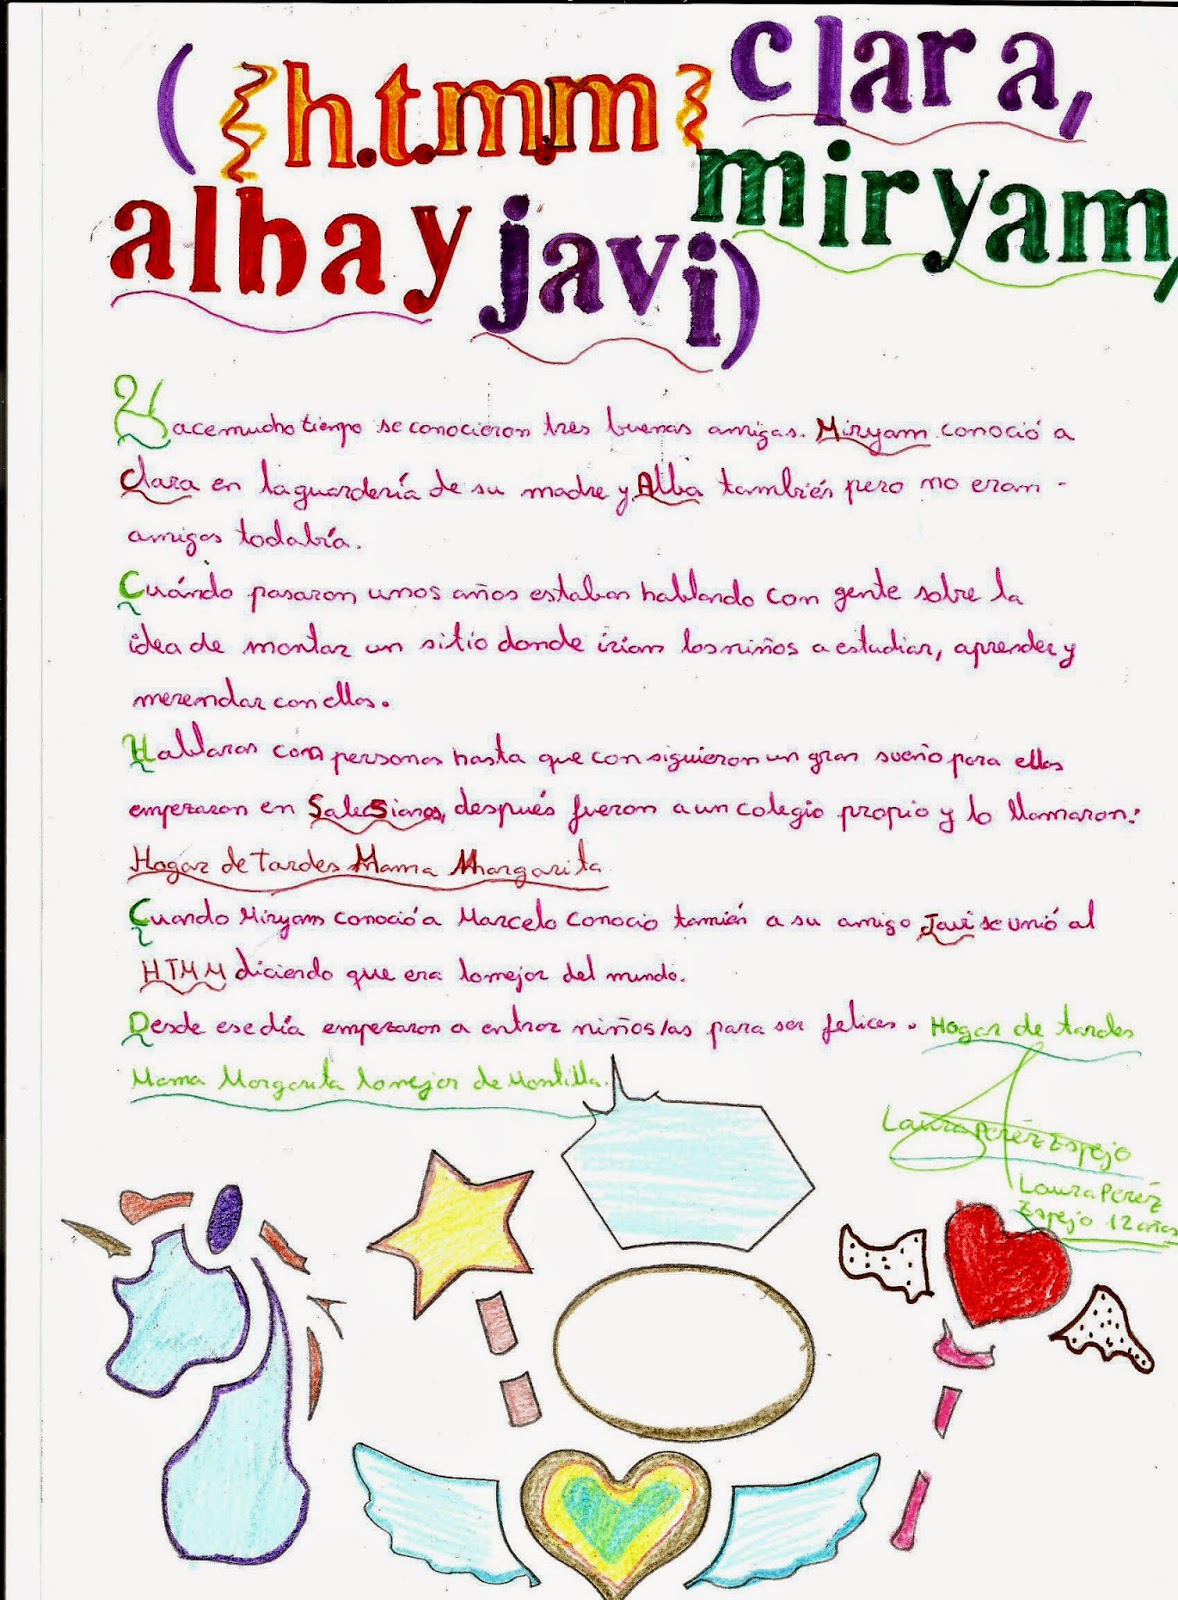 ( { h.t.m.m } clara,
miryam,
alba y javi)
Hace mucho tiempo se conocieron tres buenas amigas. Miryam conoció a
Clara en la guardería de su madre y Alba también pero no eran
amigas todabía.
Cuándo pasaron unos años estaban hablando con gente sobre la
idea de montar un sitio donde irian los niños a estudiar, aprender y
merendar con ellas.
Hablaron con personas hasta que consiguieron un gran sueño para ellas
empezaron en Salesianos, después fueron a un colegio propio y lo llamaron:
Hogar de tardes Mama Margarita
Cuando Miryam conoció a Marcelo conocio tamién a su amigo Javi se unió al
HTMM diciendo que era lo mejor del mundo.
Desde ese día empezaron a entrar niños/as para ser felices. Hogar de tardes
Mama Margarita lo mejor de Montilla.
Laura Peréz Espejo
Laura Peréz
Espejo 12 años